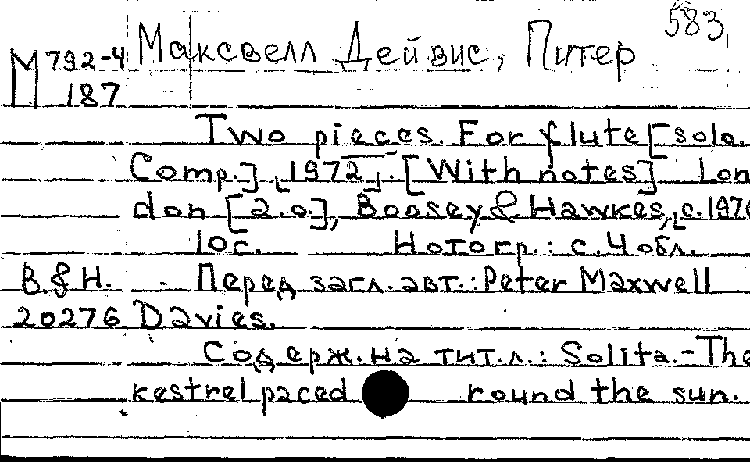 583
Максвелл Дейвис, Питер
М 792-4
187
Two pieces. For flute [solo.
Comp.] [1972]. [With notes] Lon
don [a.o.], Boosey & Hawkes, [c.197
10с. Нотогр.: с. 4 обл.
B.&H. Перед загл. авт.: Peter Maxwell
20276 Davies.
Содерж. на тит. л.: Solita.-The
kestrel paced round the sun.